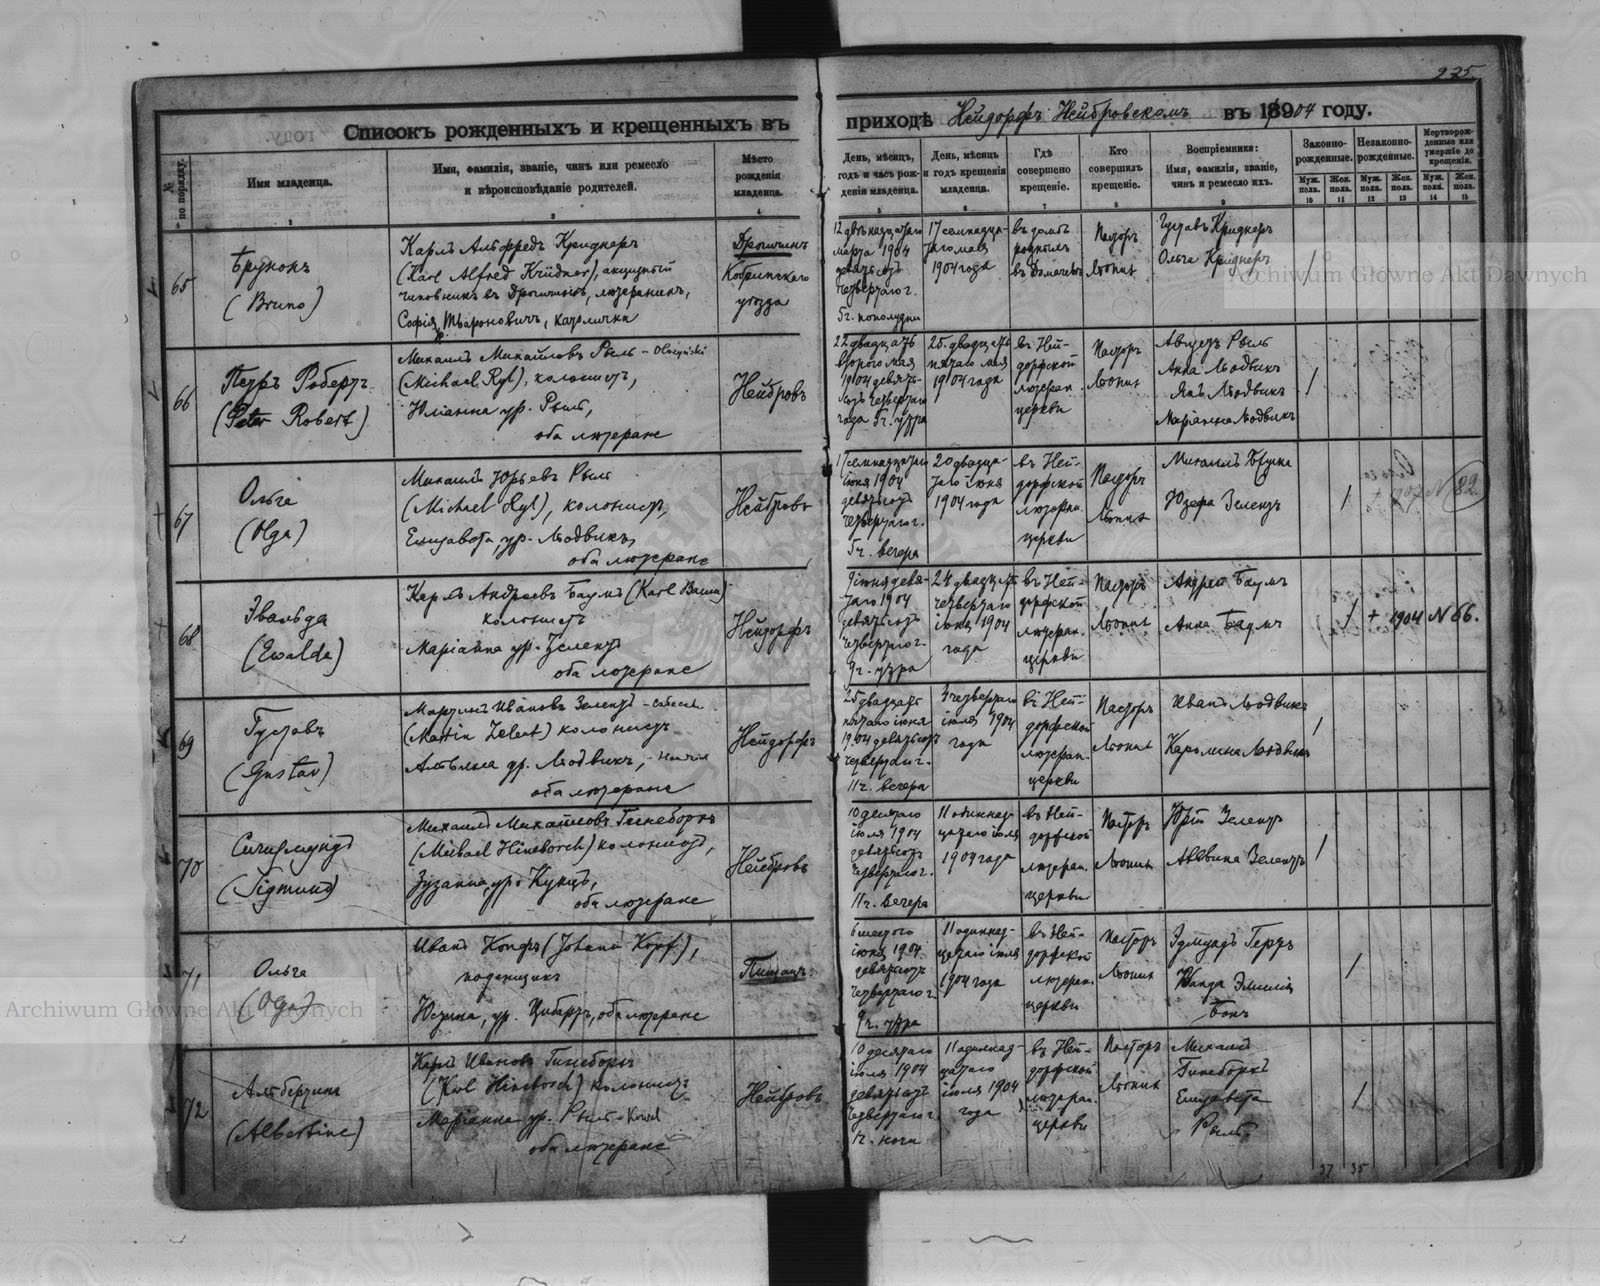 225.
Списокъ рожденныхъ и крещенныхъ въ приходѣ Нейдорфъ Нейбровскомъ въ 1904 году.
№ по порядку.
Имя младенца.
Имя, фамилія, званіе, чинъ или ремесло и вѣроисповѣданіе родителей.
Мѣсто рожденія младенца.
День, мѣсяцъ, годъ и часъ рожденія младенца.
День, мѣсяцъ и годъ крещенія младенца.
Гдѣ совершено крещеніе.
Кто совершилъ крещеніе.
Воспріемники: Имя, фамилія, званіе, чинъ и ремесло ихъ.
Законнорожденные.
Незаконнорожденные.
Мертворожденные или умершіе до крещенія.
Муж. пола. Жен. пола. Муж. пола. Жен. пола. Муж. пола. Жен. пола.
1 3 4 5 6 7 8 9 10 11 12 13 14 15
65
Брунонъ
(Bruno)
Карлъ Альфредъ Криднеръ
(Karl Alfred Krüdner), акцизный
чиновникъ въ Дрогичинѣ, лютеранинъ,
Софія, католичка
Дрогичинъ
Кобринскаго
уѣзда
12 двѣнадцатаго
марта 1904
девятьсотъ
четвертаго г.
5 ч. пополудни
17 семнадца-
таго мая
1904 года
въ домѣ
въ
Пасторъ
Густавъ Криднеръ
Ольга Криднеръ
/
66
Петръ Робертъ
(Peter Robert)
Михаилъ Михайловъ Рыль
(Michael Ryl), колонистъ,
Юліанна ур. Рыль,
оба лютеране
Нейбровъ
22 двадцать
второго мая
1904 девять-
сотъ четвертаго
года 5 ч. утра
25 двадцать
пятаго мая
1904 года
въ Ней-
дорфской
лютеран.
церкви
Пасторъ
Августъ Рыль
Анна Людвикъ
Янъ Людвикъ
Маріанна Людвикъ
/
67
Ольга
(Olga)
Михаилъ Юрьевъ Рыль
(Michael Ryl), колонистъ,
Елизавета, ур. Людвикъ,
оба лютеране
Нейбровъ
17 семнадцатаго
іюня 1904
девятьсотъ
четвертаго г.
5 ч. вечера
20 двадца-
таго іюня
1904 года
въ Ней-
дорфской
лютеран.
церкви
Пасторъ
Михаилъ
Юзефа Зелентъ
/ + 1907 N 82
68
Эвальда
(Ewalda)
Карлъ Андреевъ Баумъ (Karl Baum)
колонистъ
Маріанна ур. Зелентъ
оба лютеране
Нейдорфъ
9 іюня девя-
таго 1904
девятьсотъ
четвертаго г.
9 ч. утра
24 двадцать
четвертаго
іюня 1904
года
въ Ней-
дорфской
лютеран.
церкви
Пасторъ
Андрей Баумъ
Анна Баумъ
/ + 1904 N 66.
69
Густавъ
(Gustav)
Мартинъ Ивановъ Зелентъ
(Martin Zelent) колонистъ
ур. Людвикъ,
оба лютеране
Нейдорфъ
25 двадцать
пятаго іюня
1904 девятьсотъ
четвертаго г.
11 ч. вечера
4 четвертаго
іюля 1904
года
въ Ней-
дорфской
лютеран.
церкви
Пасторъ
Иванъ Людвикъ
Каролина Людвикъ
/
70
Сигизмундъ
(Sigmund)
Михаилъ Михайловъ Гинеборхъ
(Michael Hineborch) колонистъ,
Зузанна, ур. Кунцъ,
оба лютеране
Нейбровъ
10 десятаго
іюля 1904
девятьсотъ
четвертаго г.
11 ч. вечера
11 одиннад-
цатаго іюля
1904 года
въ Ней-
дорфской
лютеран.
церкви
Пасторъ
Юрій Зелентъ
Зелентъ
/
71
Ольга
(Olga)
Иванъ Копфъ (Johann Kopf),
поденщикъ
Юстина, ур., оба лютеране
6 шестого
іюня 1904
девятьсотъ
четвертаго г.
9 ч. утра
11 одиннад-
цатаго іюля
1904 года
въ Ней-
дорфской
лютеран.
церкви
Пасторъ
Эдмундъ
Ванда Эмилія
/
72
Альбертина
(Albertine)
Карлъ Ивановъ Гинеборхъ
(Karl Hineborch) колонистъ
Маріанна ур. Рыль
оба лютеране
Нейбровъ
10 десятаго
іюля 1904
девятьсотъ
четвертаго г.
1 ч. ночи
11 одиннад-
цатаго
іюля 1904
года
въ Ней-
дорфской
лютеран.
церкви
Пасторъ
Михаилъ
Гинеборхъ
Елизавета
Рыль
/
37 35
Archiwum Główne Akt Dawnych
Archiwum Główne Akt Dawnych